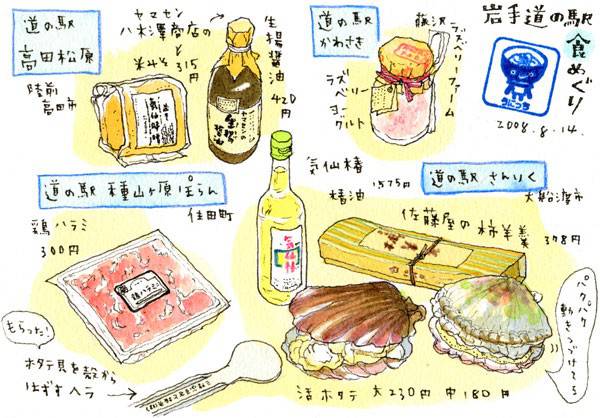 岩手道の駅
食めぐり
2008.8.14.
道の駅
高田松原
陸前
高田市
ヤマセン
八木澤商店の
¥415円
生揚醤油
420円
生揚醤油
道の駅
かわさき
藤沢
ラズベリーファーム
ラズ
ベリー
ヨー
グルト
道の駅 種山ヶ原ぽらん
住田町
鶏ハラミ
300円
鶏ハラミ
気仙椿
椿油
1575円
気仙椿
道の駅 さんりく
大船渡市
佐藤屋の柿羊羹
378円
もらった!
ホタテ貝を殻から
はずすヘラ
活ホタテ 大230円 中180円
パクパク
動きつづけてる